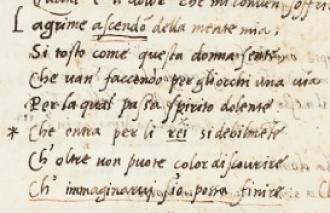 Lagrime ascendō della mente mia;
Si tosto come questa donna sente
Che van' faccendo per gliocchi una via
Per la qual passa spirito dolente
* Che entra per li rei si debilmēte
Ch' oltre non puote color discourire
Ch' immaginarui sio possa finire